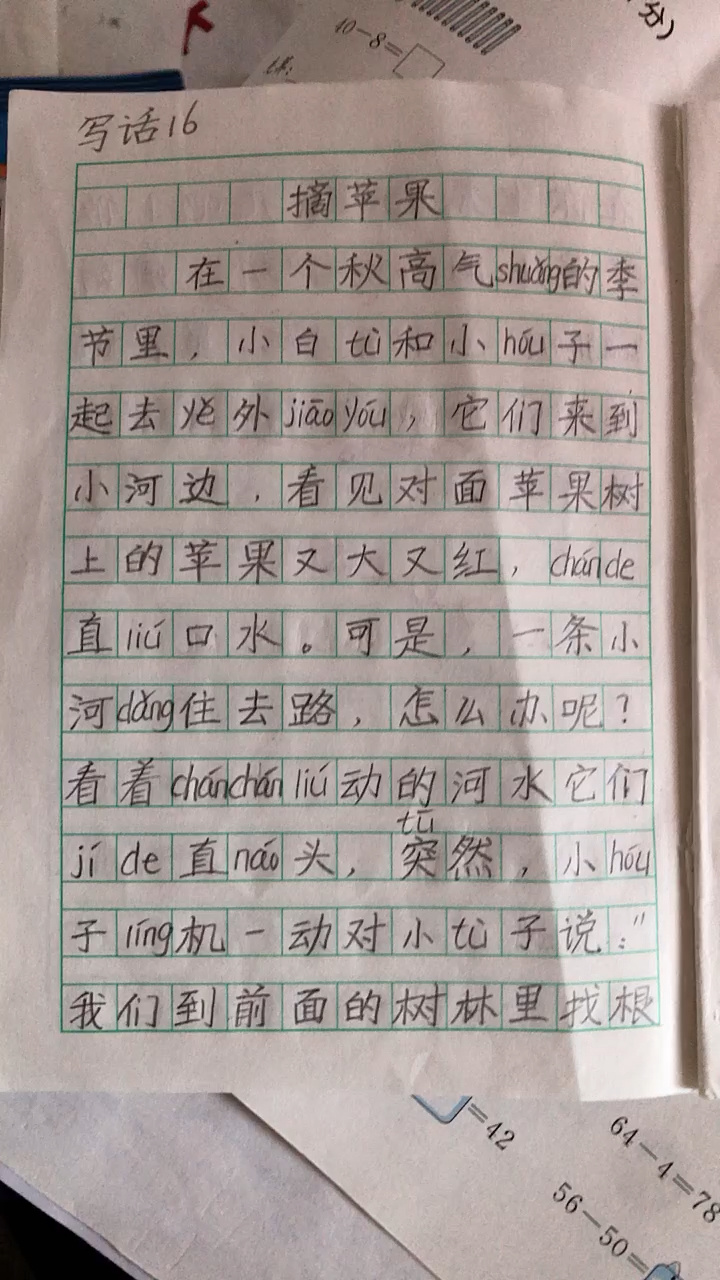 分）
10-8=
写话16
摘苹果
在一个秋高气shuǎng的季
节里，小白tù和小hóu子一
起去外jiāo yóu，它们来到
小河边，看见对面苹果树
上的苹果又大又红，chán de
直liú口水。可是，一条小
河dǎng住去路，怎么办呢？
看着chánchán liú动的河水它们
tū
jí de 直náo头，突然，小hóu
子líng机一动对小tù子说：“
我们到前面的树林里找根
=42
64-4=78
56-50=